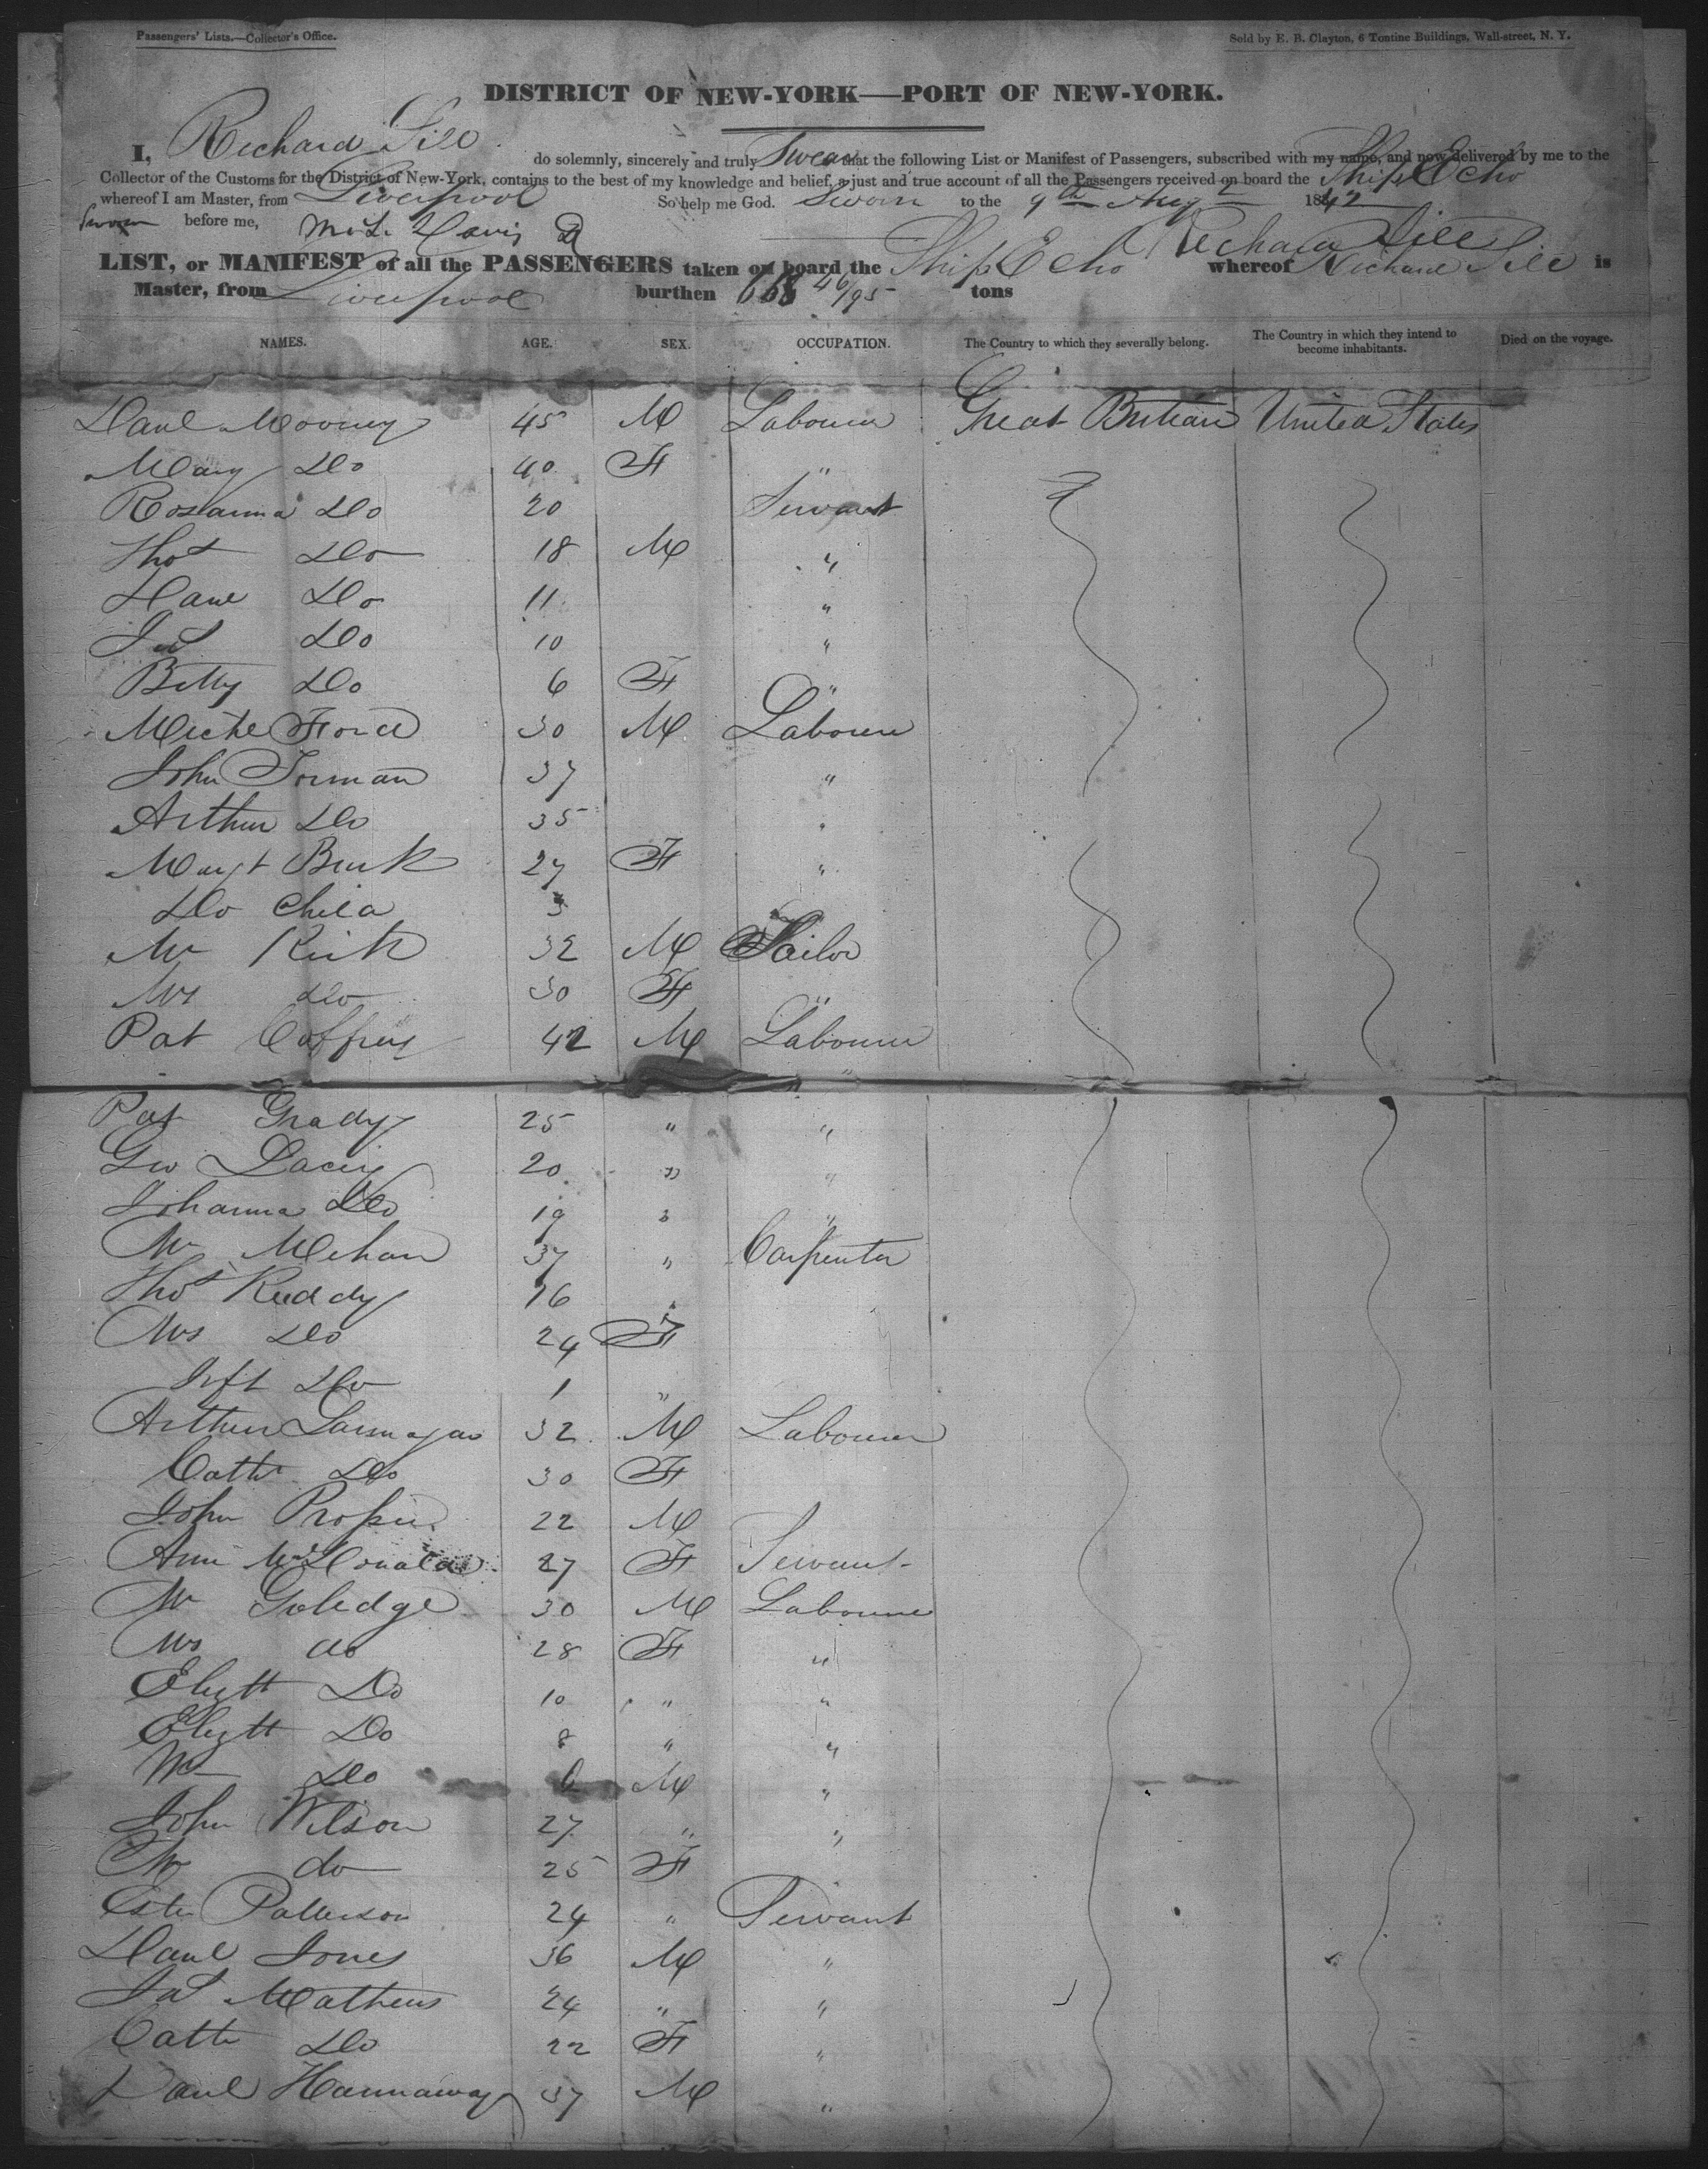 Passengers' Lists.—Collector's Office.
Sold by E. B. Clayton, 6 Tontine Buildings, Wall-street, N. Y.
DISTRICT OF NEW-YORK—PORT OF NEW-YORK.
I, Richard Sill do solemnly, sincerely and truly Swear that the following List or Manifest of Passengers, subscribed with my name, and now delivered by me to the
Collector of the Customs for the District of New-York, contains to the best of my knowledge and belief, a just and true account of all the Passengers received on board the Ship Echo
whereof I am Master, from Liverpool So help me God. Sworn to the 9th Aug 1842
Sworn before me, Davis Richard Sill
LIST, or MANIFEST of all the PASSENGERS taken on board the Ship Echo whereof Richard Sill is
Master, from Liverpool burthen 668 46/95 tons
NAMES. AGE. SEX. OCCUPATION. The Country to which they severally belong. The Country in which they intend to become inhabitants. Died on the voyage.
Danl Mooney 45 M Labourer Great Britian United States
Mary Do 40 F "
Rosanna Do 20 Servant
Thos Do 18 M "
Danl Do 11 "
Jas Do 10 "
Betty Do 6 F "
Michl Ford 30 M Labourer
John Forman 37 "
Arthur Do 35 "
Margt Burk 27 F "
Do Child 3
Mr Kirk 32 M Tailor
Mrs Do 30 F "
Pat Coffrey 42 M Labourer
Pat Grady 25 " "
Geo Lacey 20 " "
Johanna Do 19 " "
Mr Mehan 37 " Carpenter
Thos Ruddy 26 "
Mrs Do 24 F
Inft Do 1 "
Arthur 32 M Labourer
Cath Do 30 F
John 22 M
Ann McDonald 27 F Servant
Mr Goledge 30 M Labourer
Mrs do 28 F "
Elizth Do 10 " "
Elizth Do 8 " "
Wm Do 6 M "
John Wilson 27 " "
do 25 F
Ester Patterson 24 " Servant
Danl Jones 36 M "
Jas Mathews 24 " "
Cath Do 22 F "
Danl Hannaway 37 M "